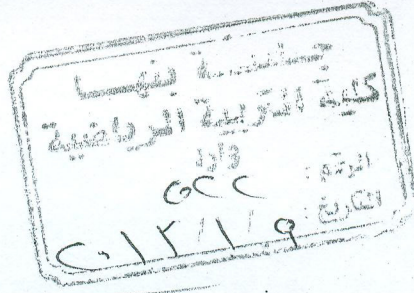 جامعة بنها
كلية التربية الرياضية
وارد
الرقم: ٥٢٢
التاريخ: ٩ / ١ / ٢٠١٣